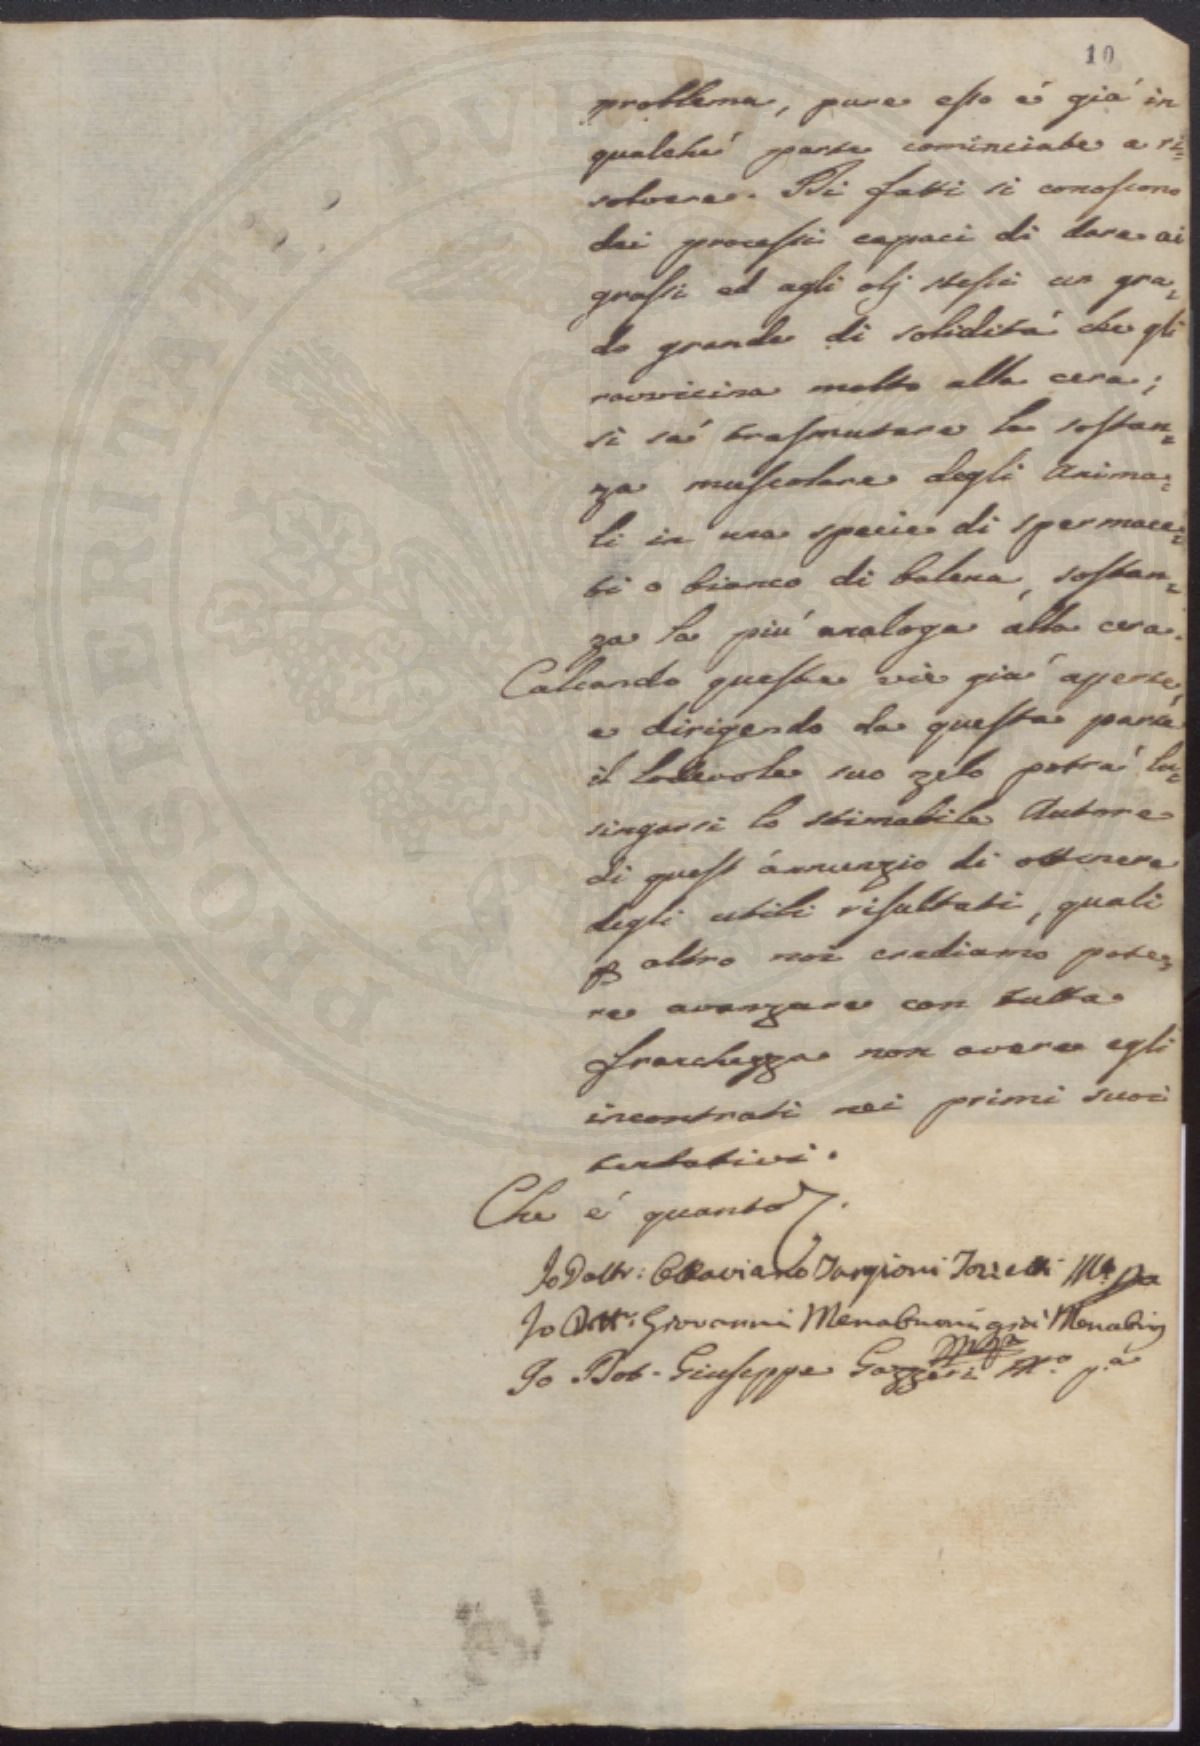 10
problema, pure esso é giá in
qualché parte cominciato a ri=
solvere. Di fatti si conoscono
dei processi capaci di dare ai
grassi ed agli olj stessi un gra=
do grande di solidità che gli
ravvicina molto alla cera;
si sá trasmutare la sostan=
za muscolare degli Anima=
li in una specie di spermace=
ti o bianco di balena, sostan=
za la piú analoga alla cera.
Calcando queste vie giá aperte,
e dirigendo da questa parte
il lodevole suo zelo potrá lu=
singarsi lo stimabile Autore
di quest'annunzio di ottenere
degli utili risultati, quali
altro noi crediamo pote=
re avanzare con tutta
franchezza non avere egli
incontrati nei primi suoi
tentativi.
Che é quanto
Io Dottr: Ottaviano Targioni Tozzetti
Io Dottr: Giovanni Menabuoni
Io Dot. Giuseppe Gazzeri
PROSPERITATI PVBLICAE